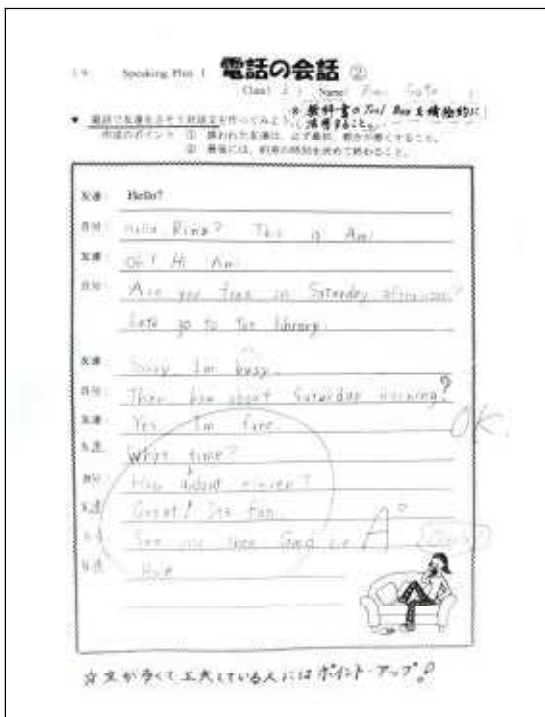 Speaking Plus 1 電話の会話 ②
Class Name Ami Sato
★ 電話で友達をさそう対話文を作ってみよう。
※ 教科書の Tool Box を積極的に
活用すること。
作成のポイント ① 誘われた友達は、必ず最初、都合が悪くすること。
② 最後には、約束の時刻を決めて終わること。
友達: Hello?
自分: Hello Rina? This is Ami.
友達: Oh! Hi Ami.
自分: Are you free on Saturday afternoon?
Let's go to the library.
友達: Sorry I'm busy.
自分: Then how about Saturday morning?
友達: Yes I'm
OK.
友達 What time?
自分: How about eleven?
友達: Great! Its fun.
See you then Good
A°
友達: Bye
☆文が多くて工夫している人にはポイント・アップ!